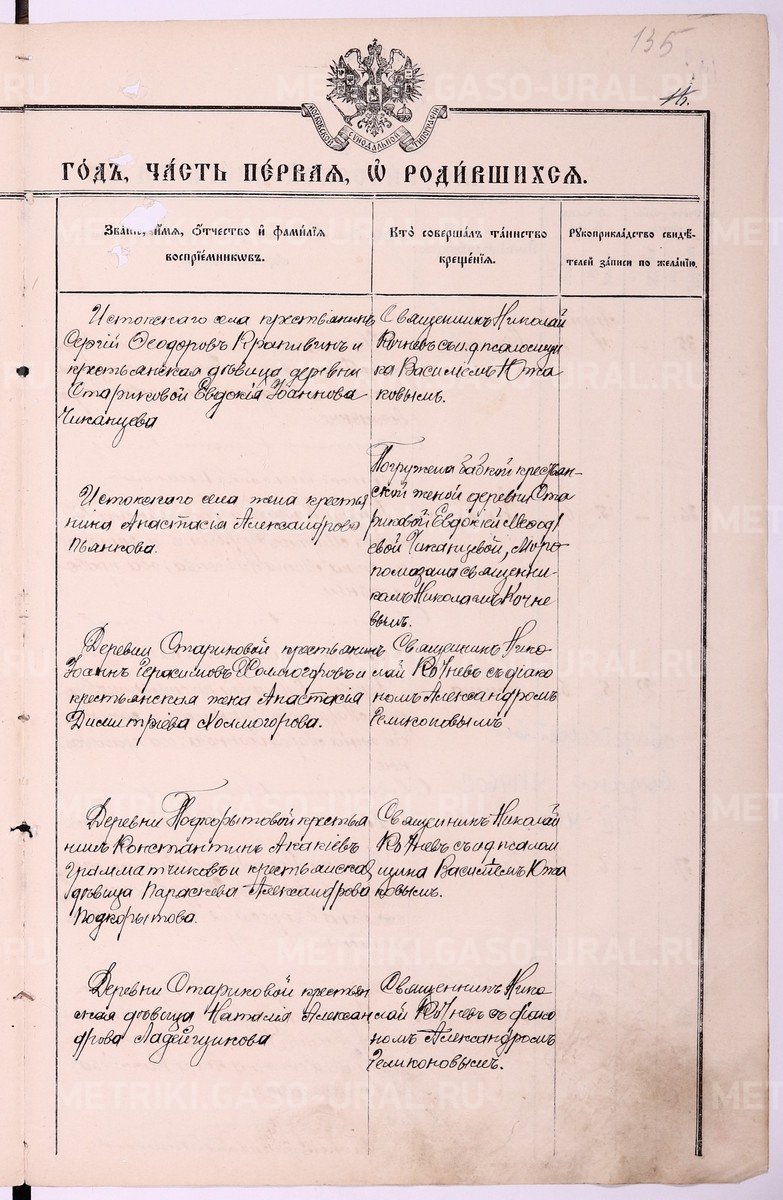 135
16.
МОСКОВСКОЙ СѴНОДАЛЬНОЙ ТИПОГРАФІИ
ГО́ДЪ, ЧА́СТЬ ПЕ́РВАЯ, Ѡ҆ РОДИ́ВШИХСЯ.
Зва́нїе, и҆́мя, ѻ҆́тчество и҆ фами́лїя
воспрїе́мниковъ.
Кто̀ соверша́лъ та́инство
креще́нїя.
Рꙋкоприкла́дство свидѣ́-
телей за́писи по жела́нїю.
Истокскаго села крестьянинъ
Сергій Ѳеодоровъ Крапивинъ и
крестьянская дѣвица деревни
Стариковой Евдокія Іоаннова
Чиканцева
Священникъ Николай
Кочневъ съ и. д. псаломщи
ка Василіемъ Южа
ковымъ.
Истокскаго села жена кресть
янина Анастасія Александрова
Пьянкова.
Погружена бабкой крестьян-
ской женой деревни Ста
риковой Евдокіей Меѳоді
евой Чиканцевой, Миро
помазана священни
комъ Николаемъ Кочне
вымъ.
Деревни Стариковой крестьянинъ
Іоаннъ Герасимовъ Холмогоровъ и
крестьянская жена Анастасія
Димитріева Холмогорова.
Священникъ Нико
лай Кочневъ съ діако
номъ Александромъ
Геликоновымъ
Деревни Подкорытовой крестья
нинъ Константинъ Акакіевъ
Грамматчиковъ и крестьянская
дѣвица Параскева Александрова
Подкорытова.
Священникъ Николай
Кочневъ съ и д псалом
щика Василіемъ Южа
ковымъ.
Деревни Стариковой крестьян
ская дѣвица Наталія Алексан
дрова Ладейщикова
Священникъ Нико
лай Кочневъ съ діако
номъ Александромъ
Геликоновымъ.
METRIKI.GASO-URAL.RU